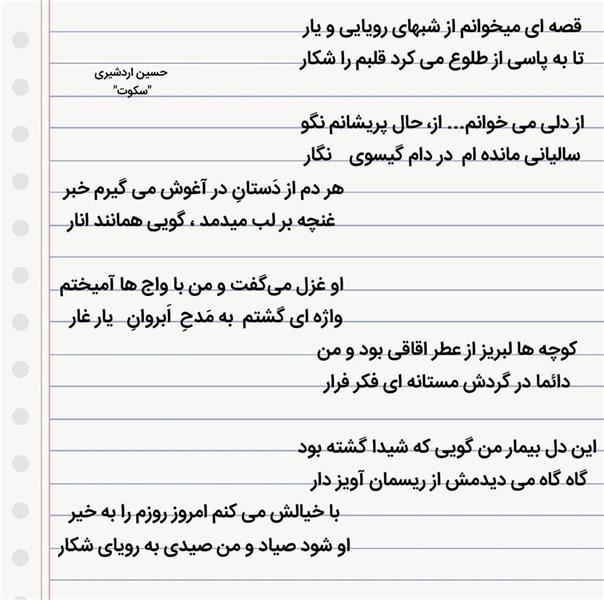 قصه ای میخوانم از شبهای رویایی و یار
تا به پاسی از طلوع می کرد قلبم را شکار
حسین اردشیری
"سکوت"
از دلی می خوانم... از، حال پریشانم نگو
سالیانی مانده ام در دام گیسوی نگار
هر دم از دَستانِ در آغوش می گیرم خبر
غنچه بر لب میدمد ، گویی همانند انار
او غزل می‌گفت و من با واج ها آمیختم
واژه ای گشتم به مَدحِ اَبروانِ یار غار
کوچه ها لبریز از عطر اقاقی بود و من
دائما در گردش مستانه ای فکر فرار
این دل بیمار من گویی که شیدا گشته بود
گاه گاه می دیدمش از ریسمان آویز دار
با خیالش می کنم امروز روزم را به خیر
او شود صیاد و من صیدی به رویای شکار